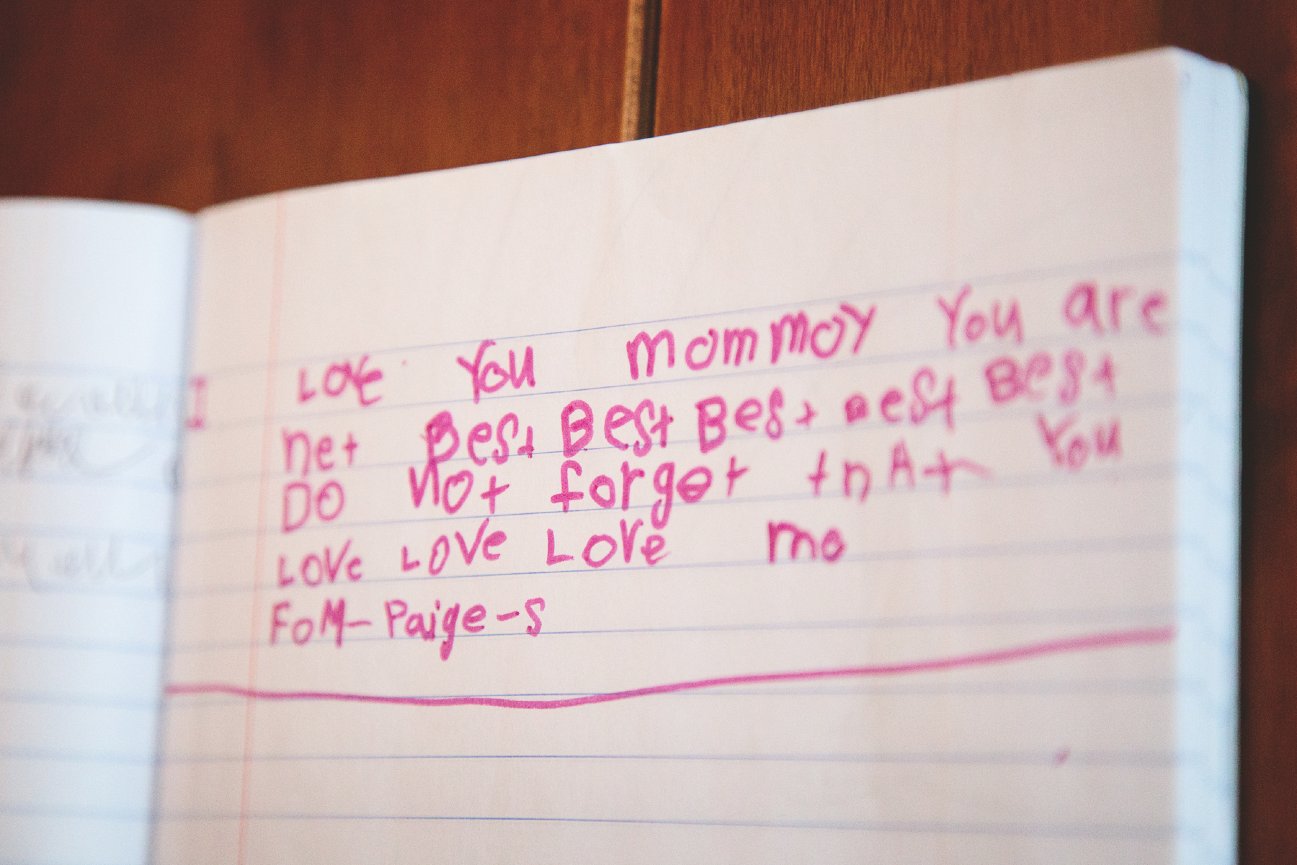 I LOVE You mommoy You are
het Best Best Best Best Best
DO Not forget thAt You
LOVE LOVE LOVE me
FoM-Paige-S